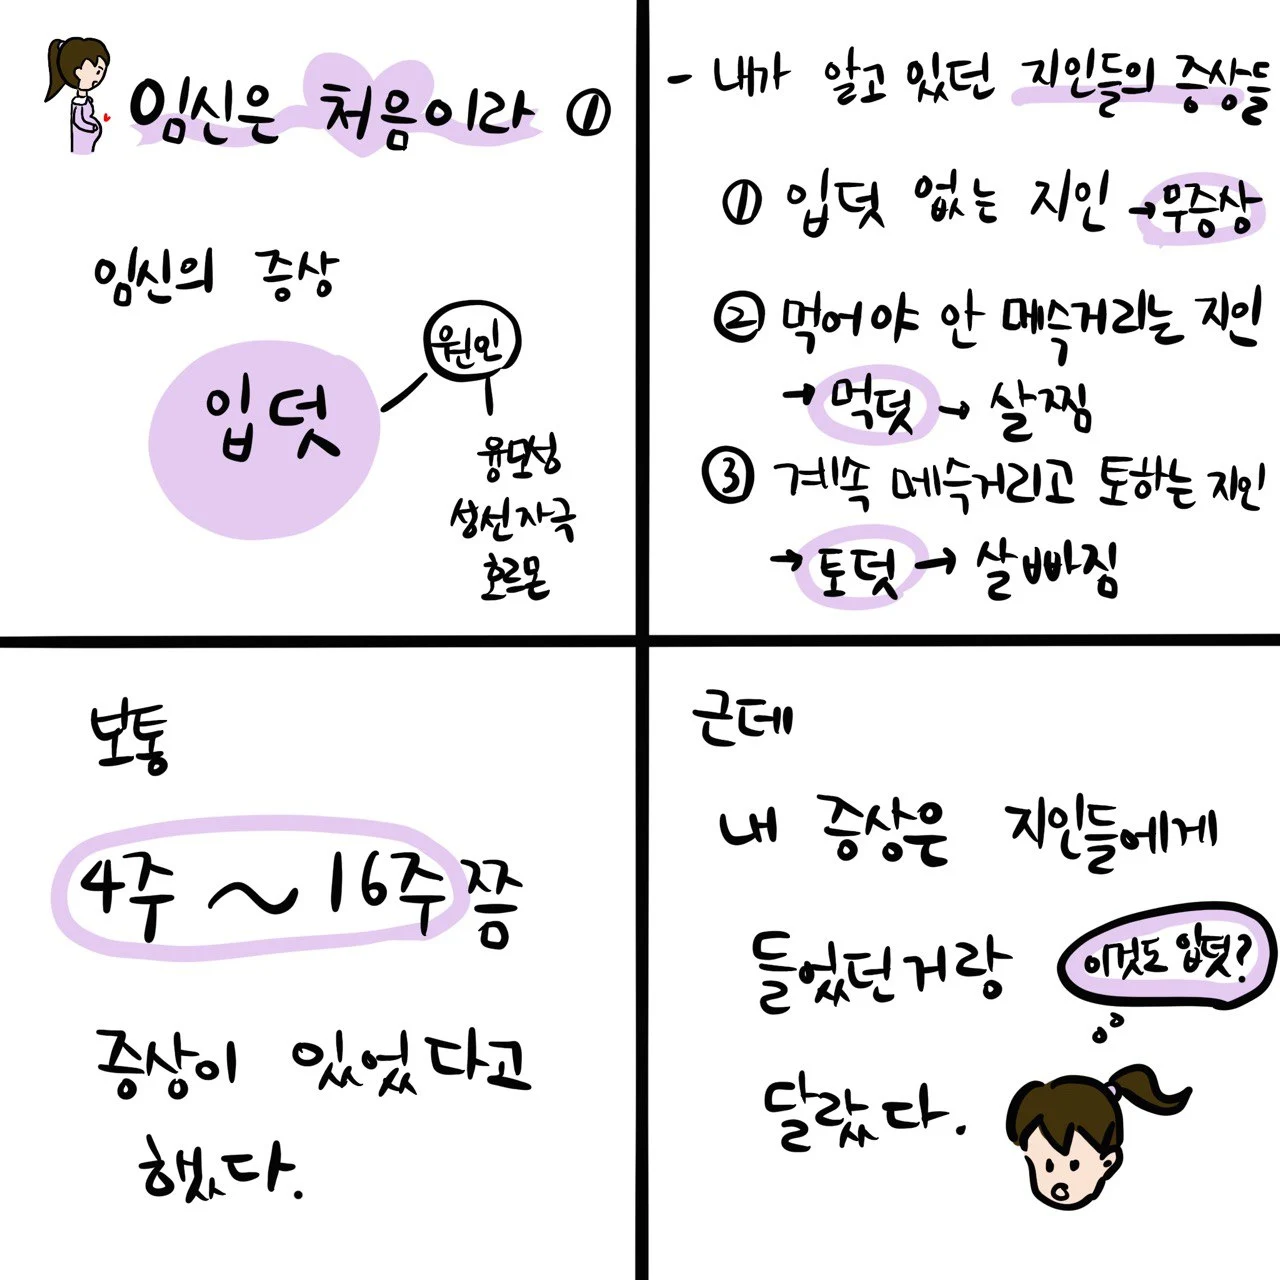 임신은 처음이라 ①
임신의 증상
입덧
원인
융모성
성선자극
호르몬
- 내가 알고 있던 지인들의 증상들
① 입덧 없는 지인 → 무증상
② 먹어야 안 메슥거리는 지인
→ 먹덧 → 살찜
③ 계속 메슥거리고 토하는 지인
→ 토덧 → 살빠짐
보통
4주 ~ 16주쯤
증상이 있었다고
했다.
근데
내 증상은 지인들에게
들었던거랑
이것도 입덧?
달랐다.